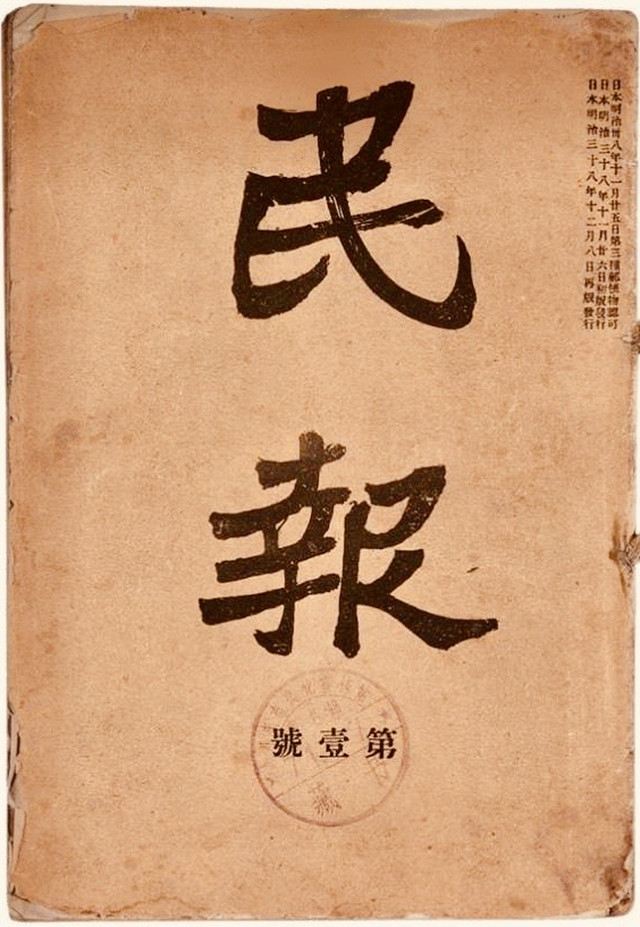 日本明治卅八年十一月廿五日第三種郵便物認可
日本明治三十八年十一月廿六日初版發行
日本明治三十八年十二月八日再版發行
民報
第壹號
藏